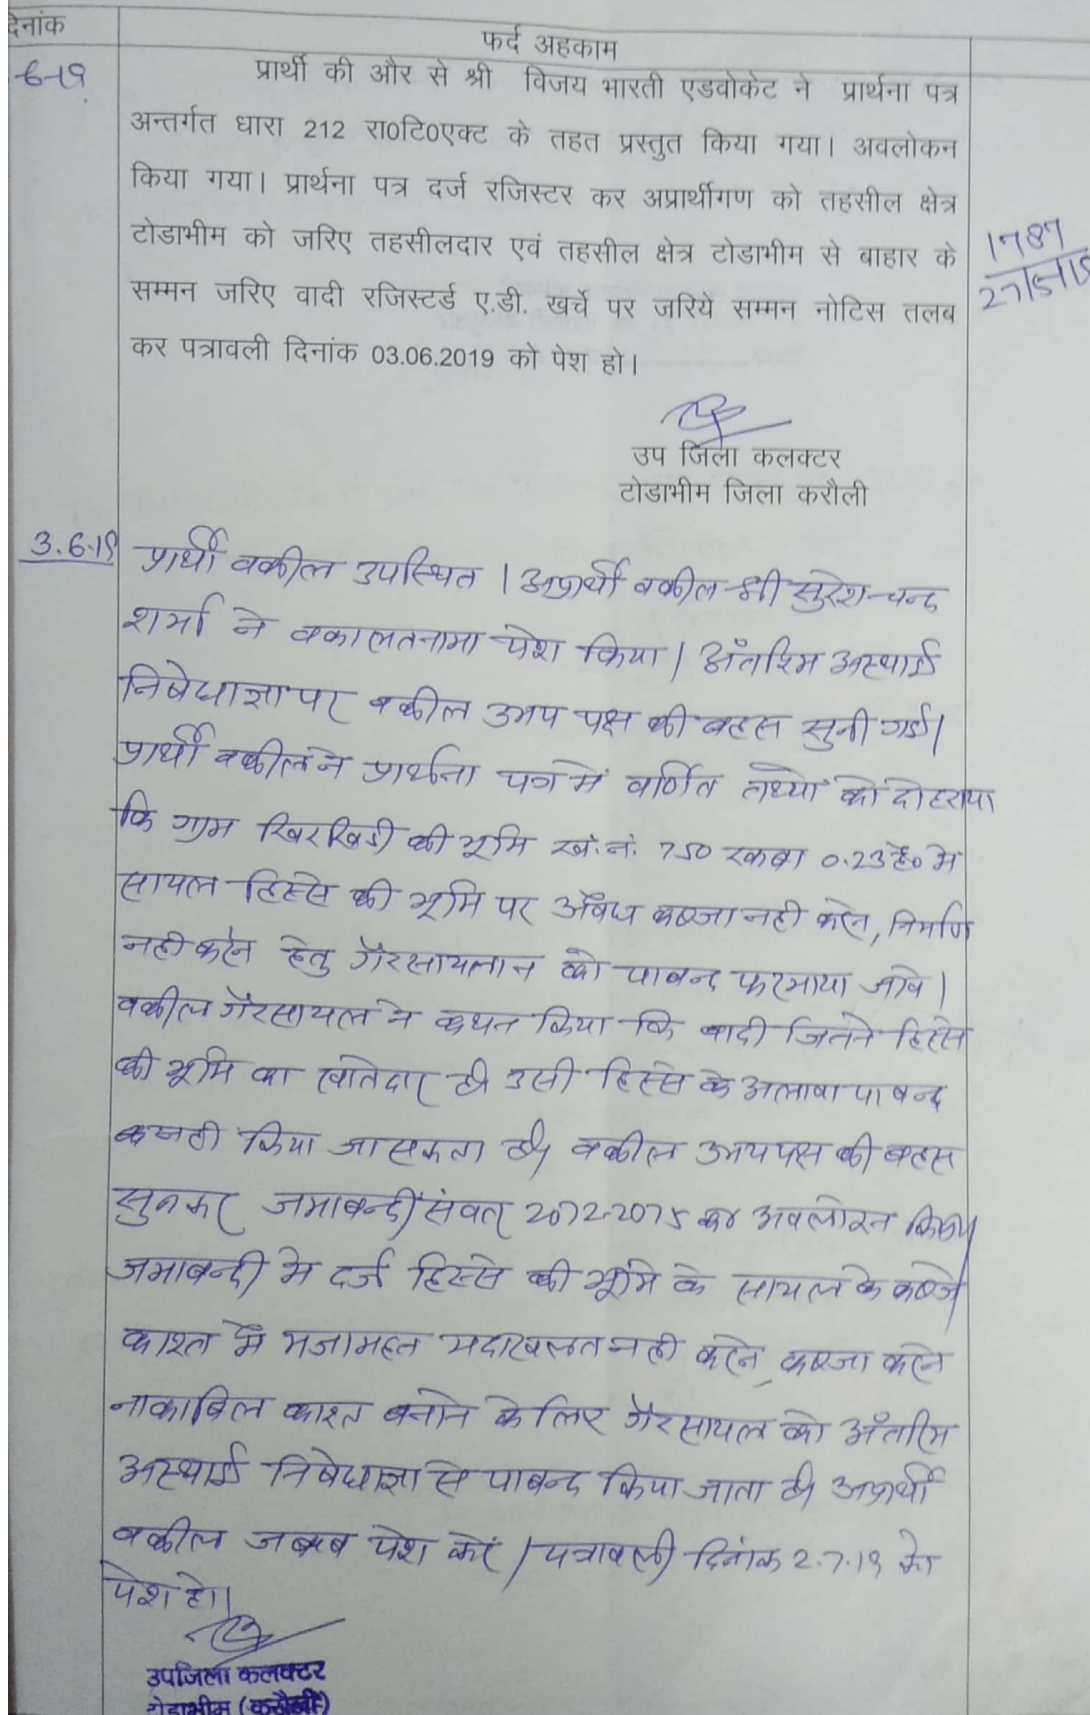 दिनांक
फर्द अहकाम
6-19
प्रार्थी की और से श्री विजय भारती एडवोकेट ने प्रार्थना पत्र
अन्तर्गत धारा 212 रा0टि0एक्ट के तहत प्रस्तुत किया गया। अवलोकन
किया गया। प्रार्थना पत्र दर्ज रजिस्टर कर अप्रार्थीगण को तहसील क्षेत्र
टोडाभीम को जरिए तहसीलदार एवं तहसील क्षेत्र टोडाभीम से बाहार के
सम्मन जरिए वादी रजिस्टर्ड ए.डी. खर्चे पर जरिये सम्मन नोटिस तलब
कर पत्रावली दिनांक 03.06.2019 को पेश हो।
1787
27/5/19
उप जिला कलक्टर
टोडाभीम जिला करौली
3.6.19
प्रार्थी वकील उपस्थित। अप्रार्थी वकील श्री सुरेश चन्द
शर्मा ने वकालतनामा पेश किया। अँतरिम अस्थाई
निषेधाज्ञा पर वकील उभय पक्ष की बहस सुनी गई।
प्रार्थी वकील ने प्रार्थना पत्र में वर्णित तथ्यों को दोहराया
कि ग्राम खिरखिडी की भूमि खं.नं. 750 रकबा 0.23 है० मे
सायल हिस्से की भूमि पर अवैध कब्जा नही करने, निर्माण
नही करने हेतु गैरसायलान को पाबन्द फरमाया जावे।
वकील गैरसायल ने कथन किया कि वादी जितने हिस्से
की भूमि का खातेदार है उसी हिस्से के अलावा पाबन्द
नही किया जा सकता है। वकील उभयपक्ष की बहस
सुनकर जमाबन्दी संवत् 2072-2075 का अवलोकन किया।
जमाबन्दी मे दर्ज हिस्से की भूमि के सायल के कब्जे
काश्त में मजामहत मदाखलत नही करने, कब्जा करने
नाकाबिल काश्त बनाने के लिए गैरसायल को अँतरिम
अस्थाई निषेधाज्ञा से पाबन्द किया जाता है। अप्रार्थी
वकील जबाब पेश करें। पत्रावली दिनांक 2.7.19 को
पेश हो।
उपजिला कलक्टर
टोडाभीम (करौली)